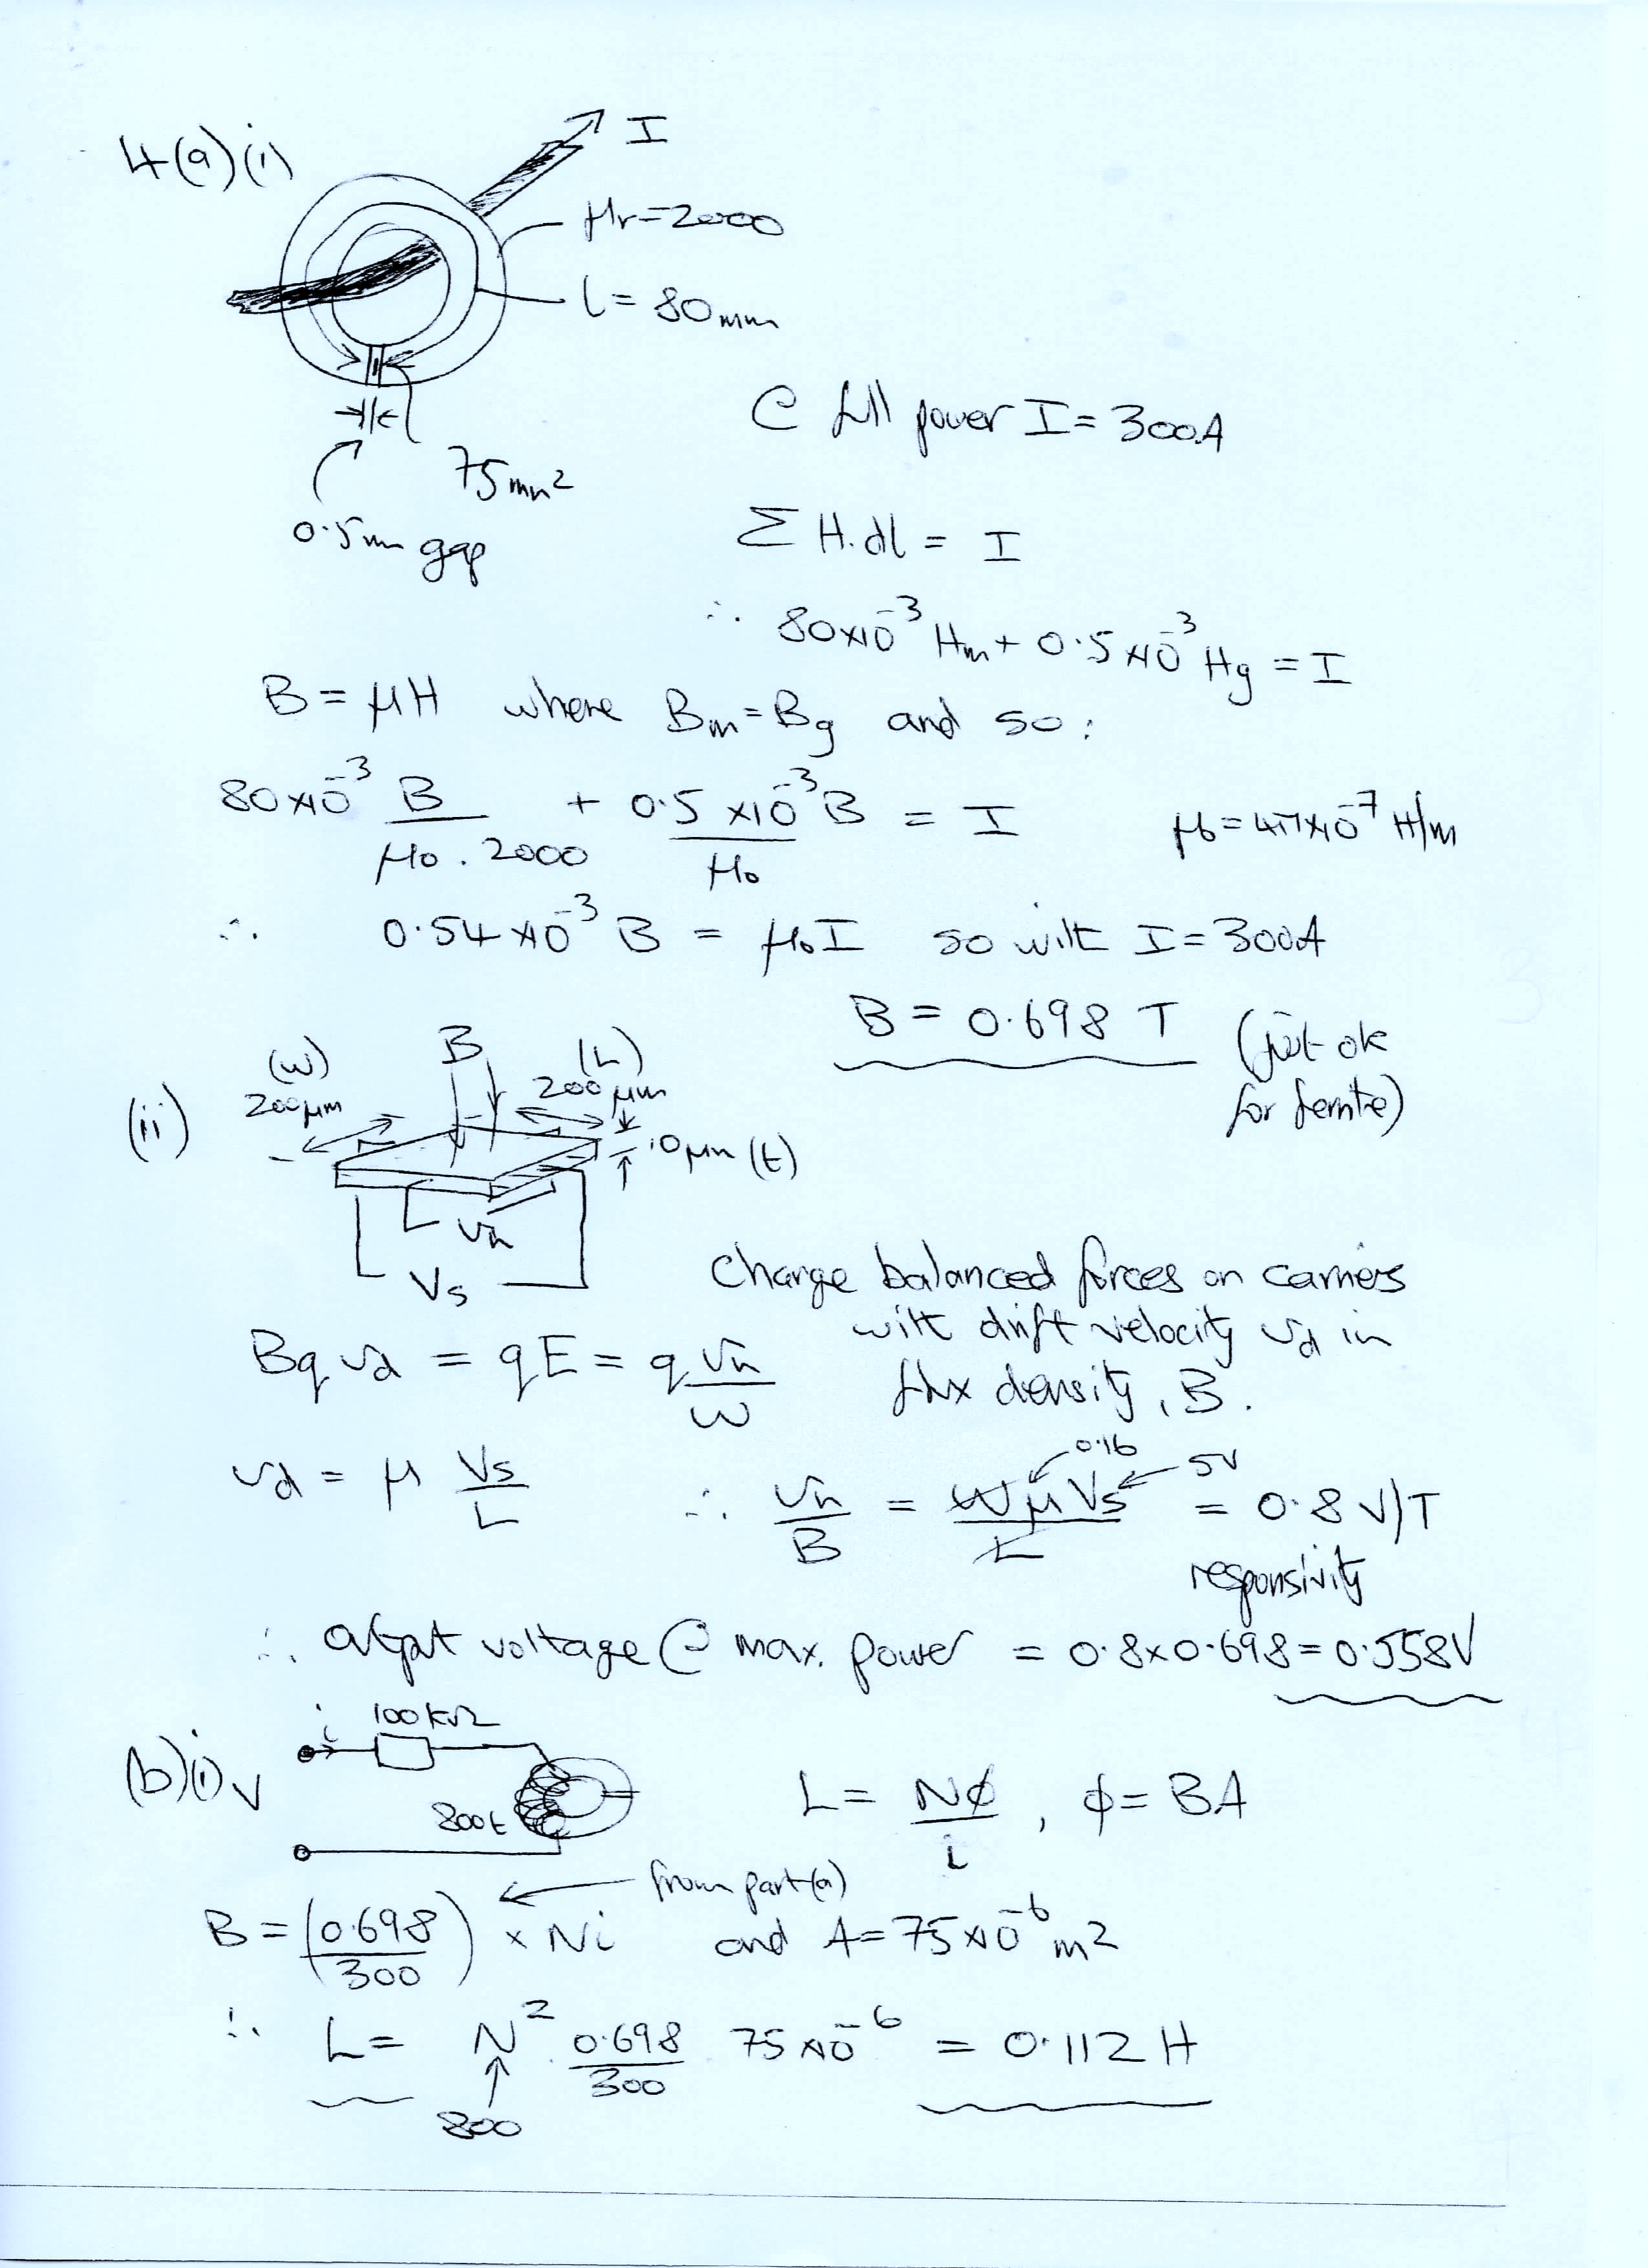 4(a)(i)
I
μr=2000
l = 80mm
75mm²
0.5mm gap
@ full power I = 300A
Σ H.dl = I
∴ 80x10⁻³ Hm + 0.5x10⁻³ Hg = I
B = μH where Bm=Bg and so:
80x10⁻³ B/(μo . 2000) + 0.5x10⁻³B/μo = I μo=4πx10⁻⁷ H/m
∴ 0.54x10⁻³ B = μoI so with I=300A
B = 0.698 T (just ok for ferrite)
(ii)
(w) 200μm
B
(L) 200μm
10μm (t)
Vh
Vs
Charge balanced forces on carriers
with drift velocity vd in
flux density, B.
Bqvd = qE = q Vh/w
vd = μ Vs/L ∴ Vh/B = WμVs/L = 0.8 V/T
0.16
5V
responsivity
∴ output voltage @ max. power = 0.8x0.698=0.558V
(b)(i)
V
i
100kΩ
800t
L = Nφ/i , φ = BA
B = (0.698/300) x Ni ← from part(a) and A=75x10⁻⁶ m²
∴ L = N² 0.698/300 75x10⁻⁶ = 0.112 H
800